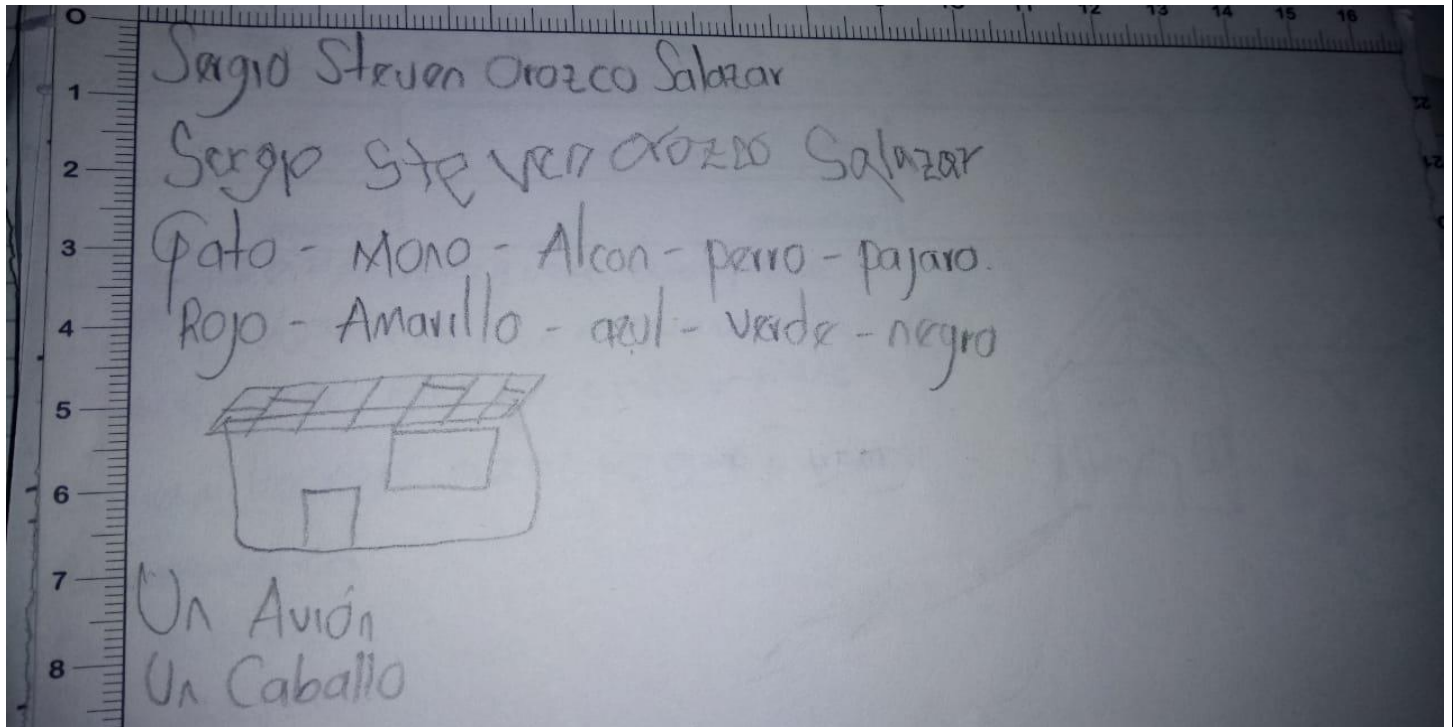 0 11 12 13 14 15 16
1
2
3
4
5
6
7
8
Sergio Steven Orozco Salazar
Sergio Steven Orozco Salazar
Gato - Mono - Alcon - perro - pajaro.
Rojo - Amarillo - azul - verde - negro
Un Avión
Un Caballo
22
21